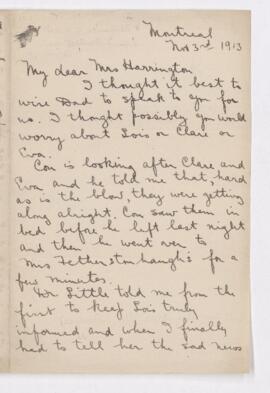 Montreal
Nov 3rd 1913
My dear Mrs Harrington
I thought it best to
wire Dad to speak to you for
us. I thought possibly you would
worry about Lois or Clare or
Eva.
Con is looking after Clare and
Eva and he told me that, hard
as is the blow, they were getting
along alright. Con saw them in
bed before he left last night
and then he went over to
Mrs Fetherstonhaugh's for a
few minutes.
Dr Little told me from the
first to keep Lois truly
informed and when I finally
had to tell her the sad news